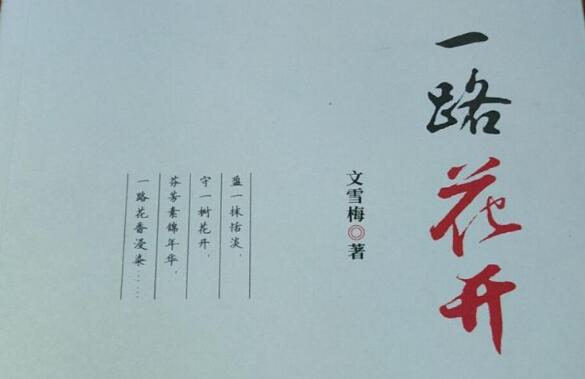 一路花开
文雪梅◎著
盈一抹恬淡，
守一树花开，
芬芳素锦年华，
一路花香漫染……